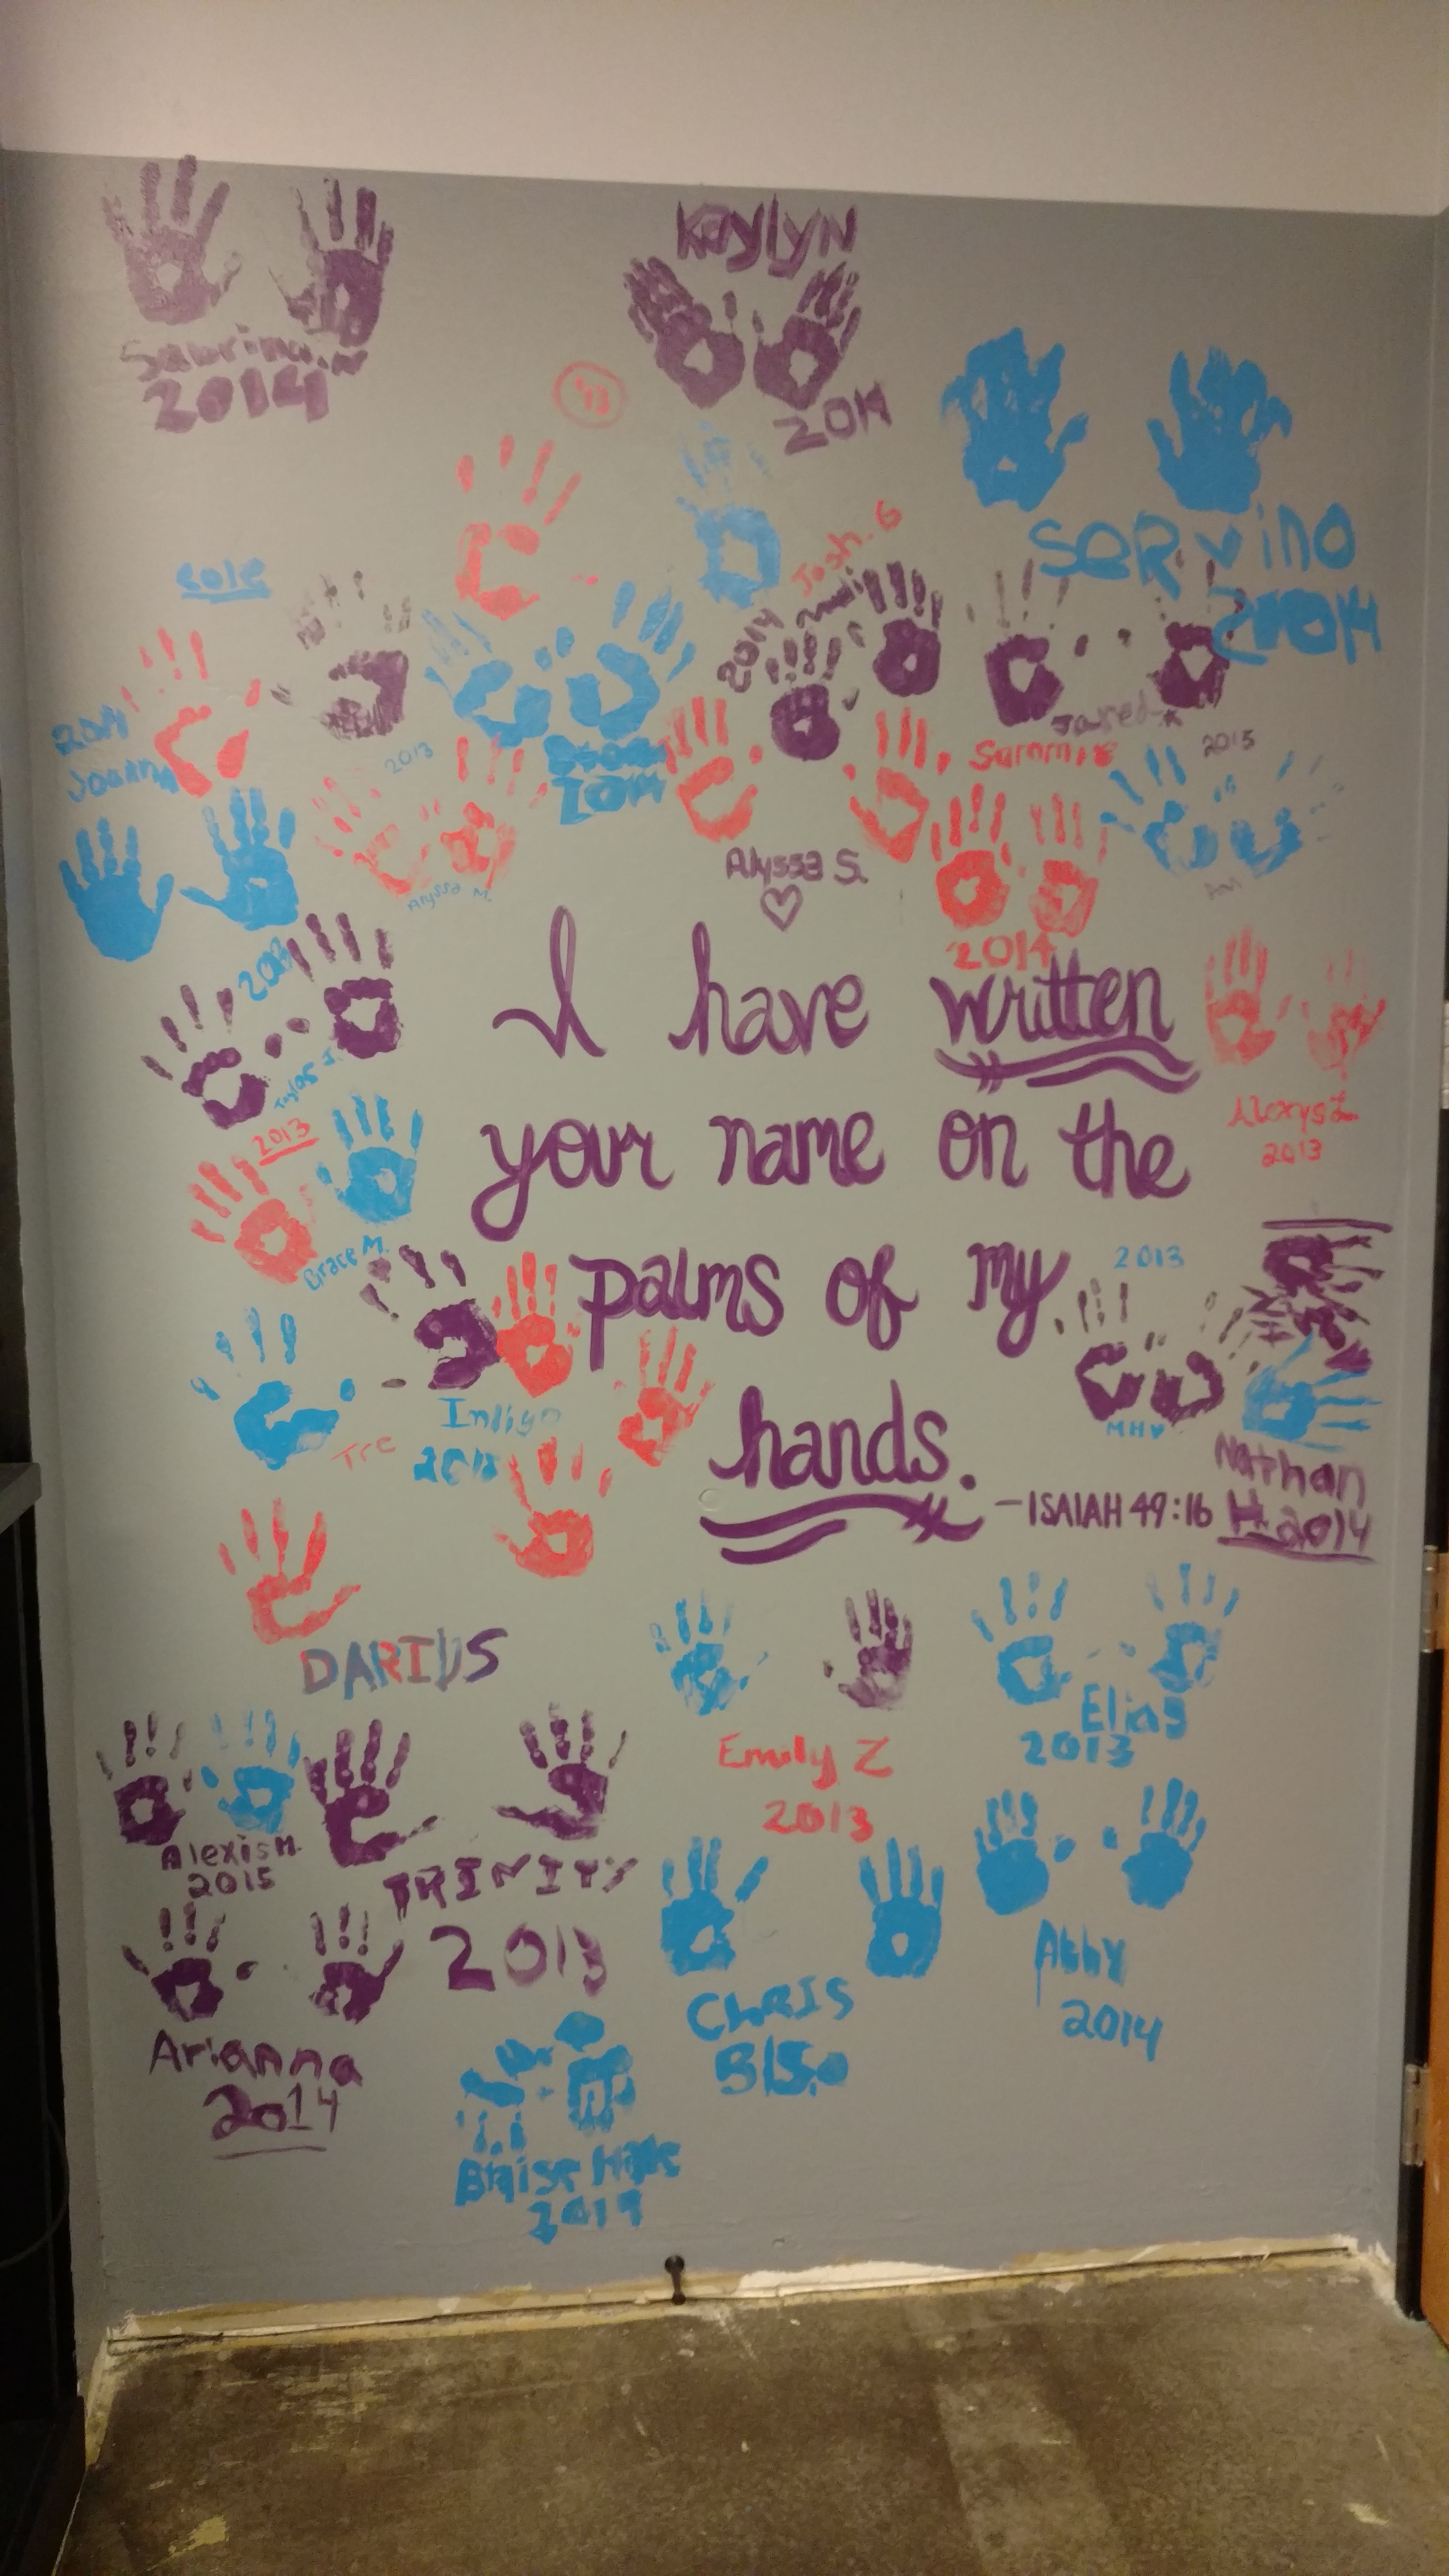 KAYLYN
2014
Sabrina
2014
'13
Servino
2014
Josh. G
2014
Cole
2014
Joann
2013
2014
Jared
2015
Sammie
2014
Alyssa M.
Alyssa S.
I have written
your name on the
palms of my
hands.
-ISAIAH 49:16
Alexys Z
2013
2013
Grace M.
2013
MHV
Nathan
H. 2014
Tre
Indigo
DARIUS
Emily Z
2013
Elias
2013
Alexis M.
2015
TRINITY
2013
Arianna
2014
Chris
Abby
2014
Blaise